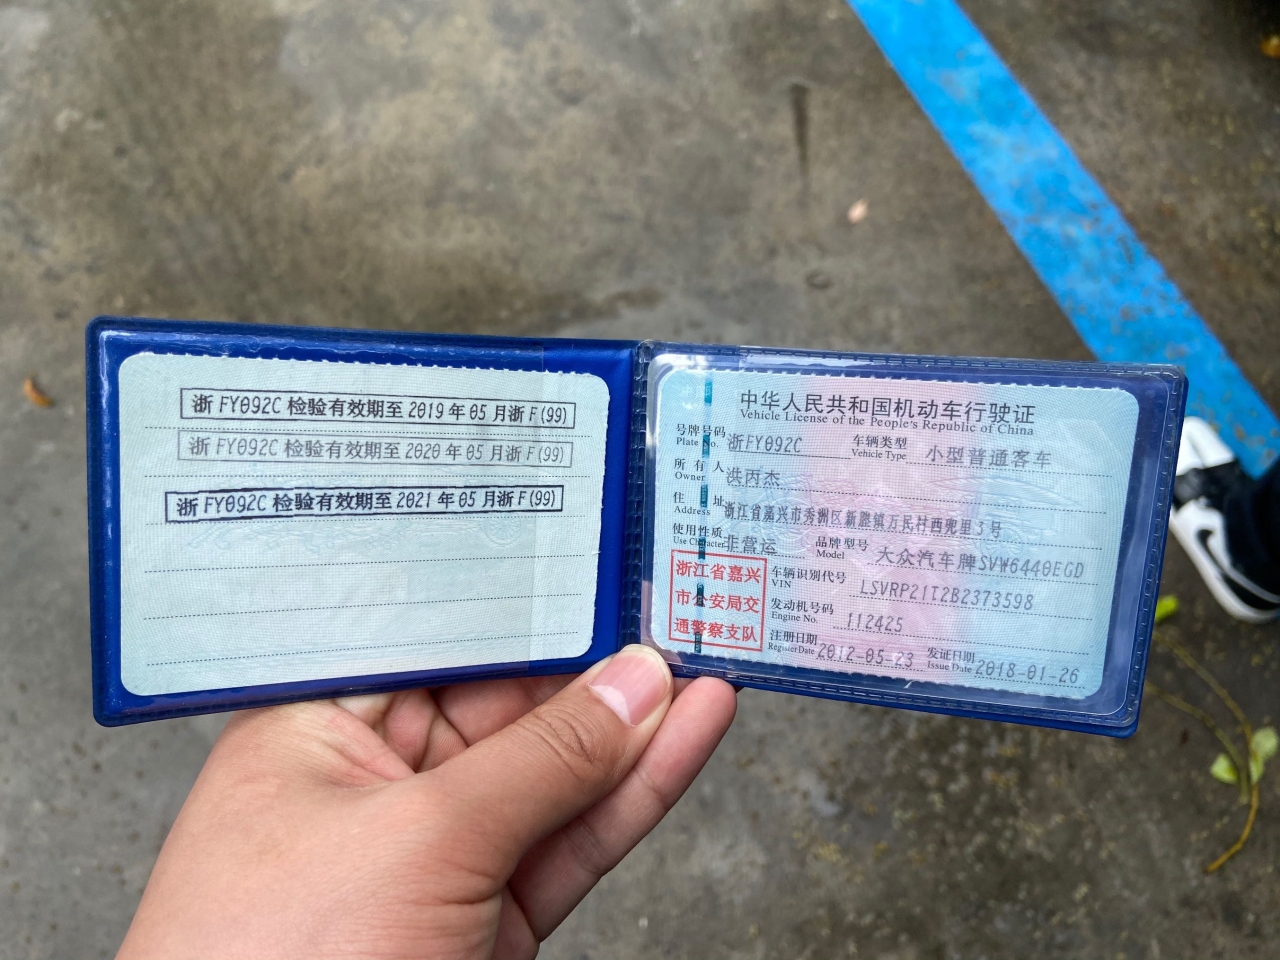 浙 FY092C 检验有效期至 2019 年 05 月浙 F (99)
浙 FY092C 检验有效期至 2020 年 05 月浙 F (99)
浙 FY092C 检验有效期至 2021 年 05 月浙 F (99)
中华人民共和国机动车行驶证
Vehicle License of the People's Republic of China
号牌号码 浙FY092C 车辆类型 小型普通客车
Plate No. Vehicle Type
所有人 洪丙杰
Owner
住址 浙江省嘉兴市秀洲区新塍镇万民村西兜里3号
Address
使用性质 非营运 品牌型号 大众汽车牌SVW6440EGD
Use Character Model
浙江省嘉兴
市公安局交
通警察支队
车辆识别代号 LSVRP21T2B2373598
VIN
发动机号码 112425
Engine No.
注册日期 2012-05-23 发证日期 2018-01-26
Register Date Issue Date